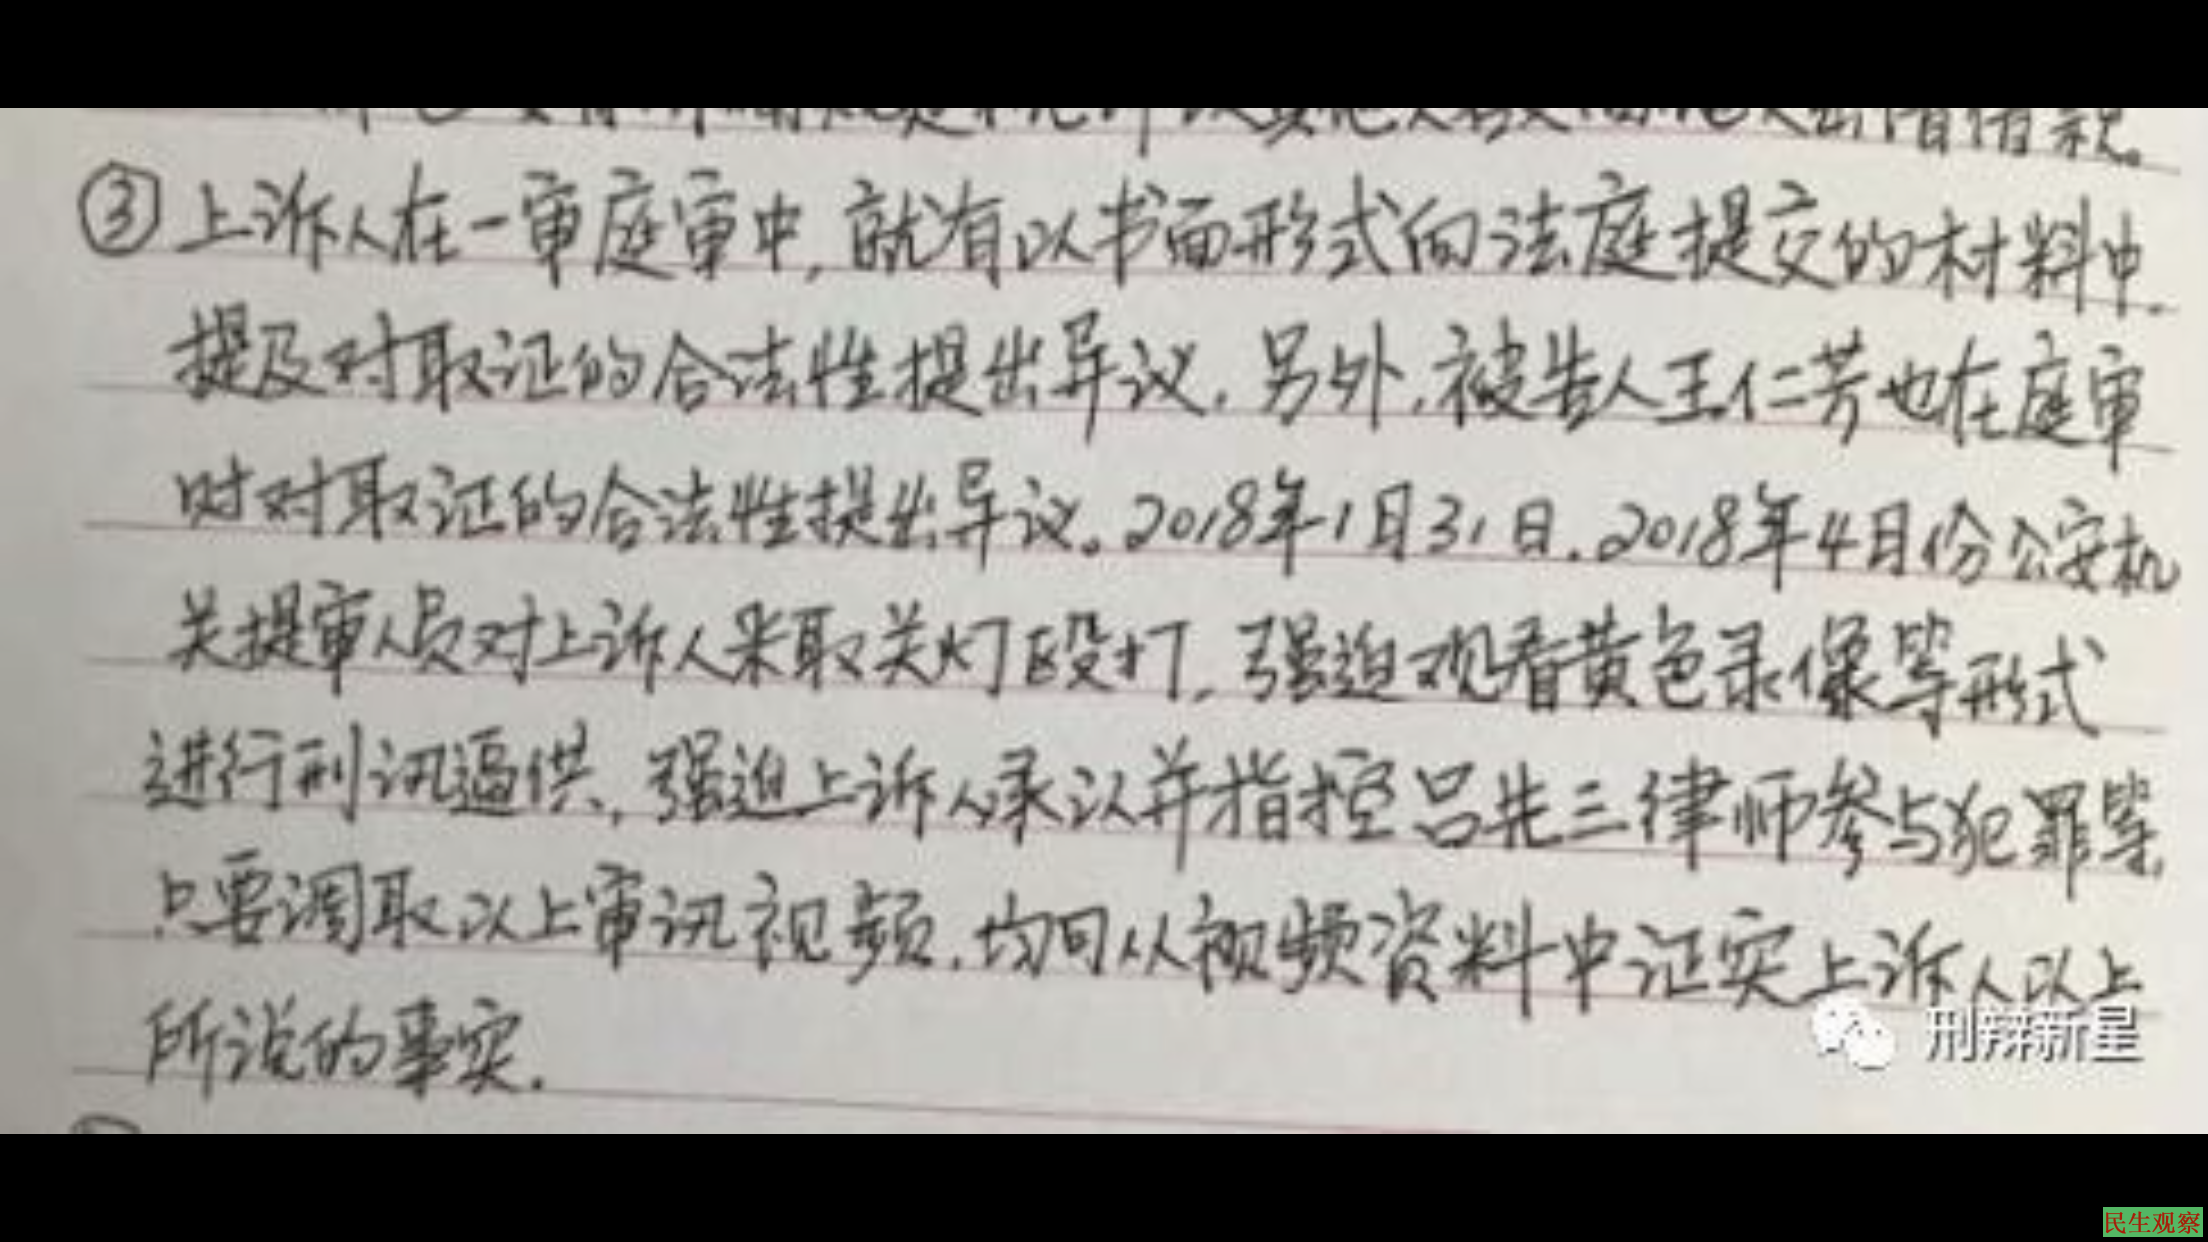 ③上诉人在一审庭审中,就有以书面形式向法庭提交的材料中
提及对取证的合法性提出异议.另外,被告人王仁芳也在庭审
时对取证的合法性提出异议。2018年1月31日.2018年4月份公安机
关提审人员对上诉人采取关灯殴打,强迫观看黄色录像等形式
进行刑讯逼供,强迫上诉人承认并指控吕先三律师参与犯罪等.
只要调取以上审讯视频,均可从视频资料中证实上诉人以上
所说的事实.
刑辩新星
民生观察